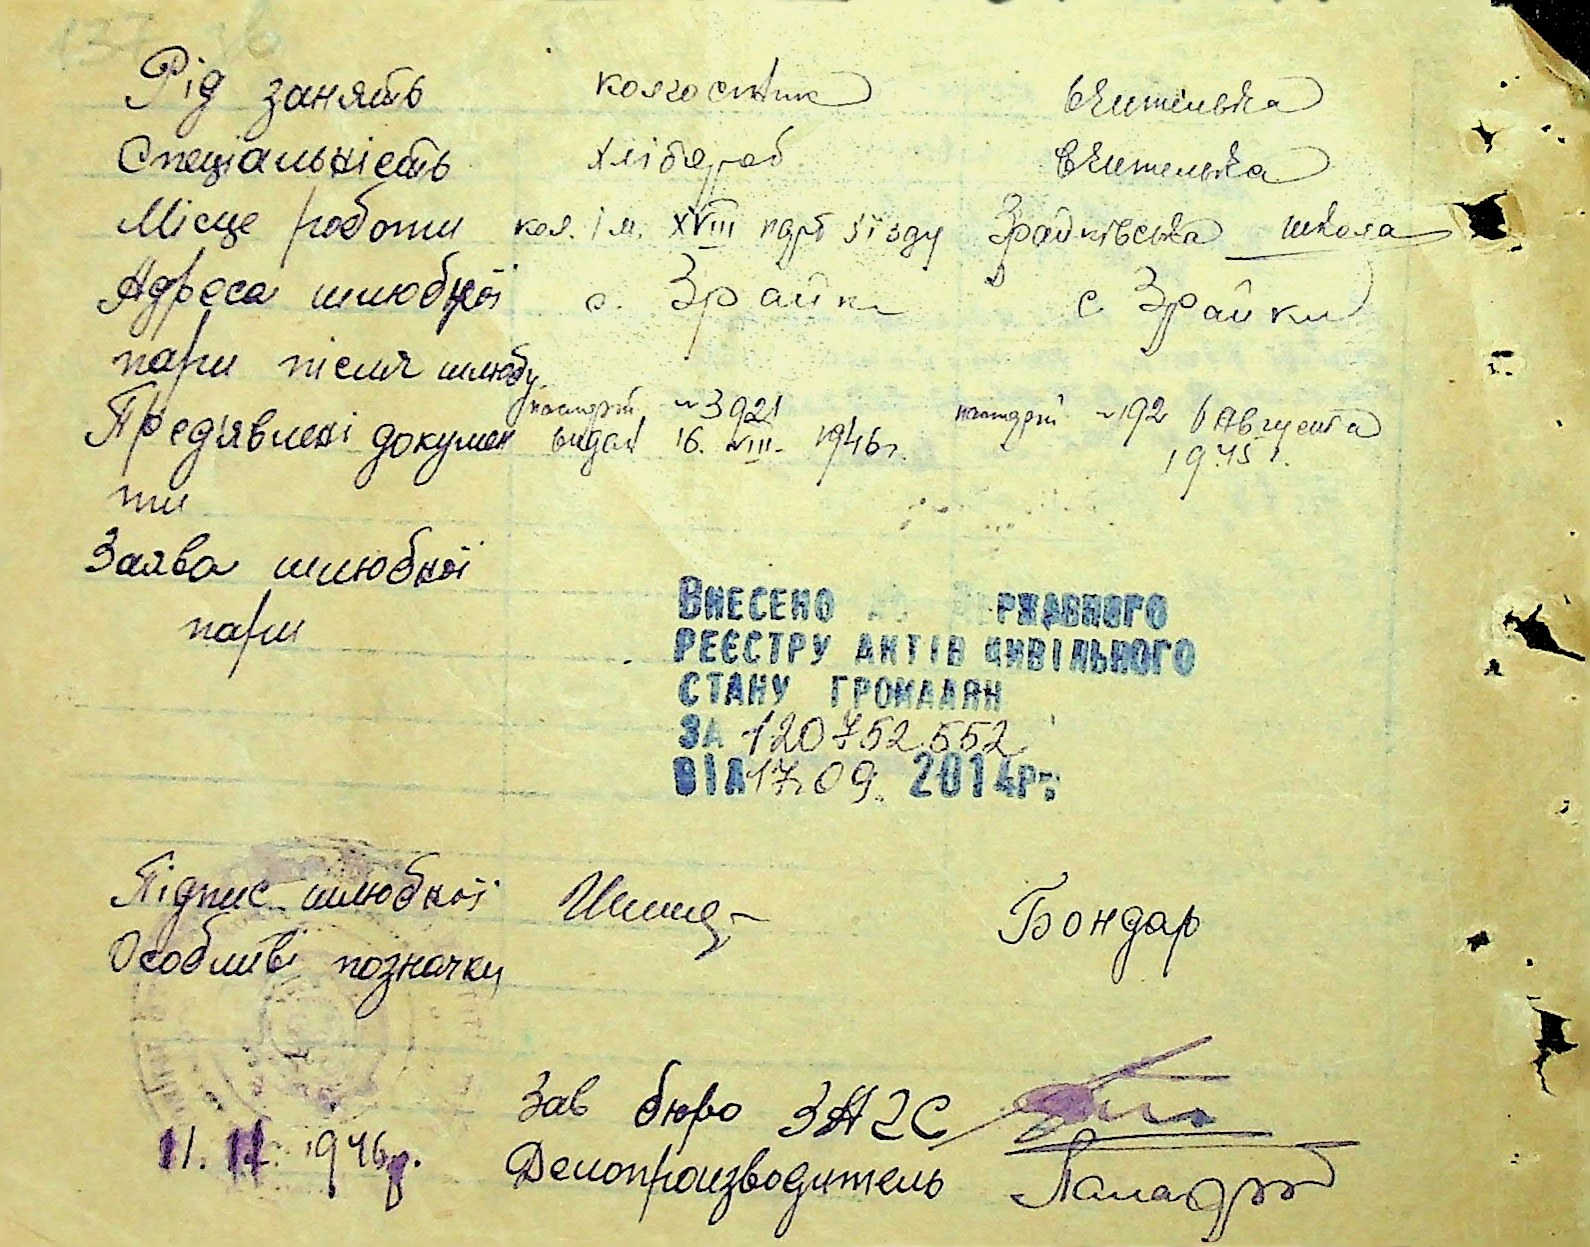 Рід занять колгоспник вчителька
Спеціальність хлібороб вчителька
Місце роботи кол. ім. XVIII парт з'їзду Зрайківська школа
Адреса шлюбної с. Зрайки с Зрайки
пари після шлюбу
паспорт № 3921 паспорт № 192 6 Августа
Предявлені докумен видан 16. VIII. 1946 г. 1945 г.
ти
Заява шлюбної
пари
Внесено до Державного
реєстру актів цивільного
стану громадян
за 120752552
від 17.09. 2014р.
Підпис шлюбної Бондар
Особливі позначки
Зав бюро ЗАГС
11. 1946 р.
Делопроизводитель